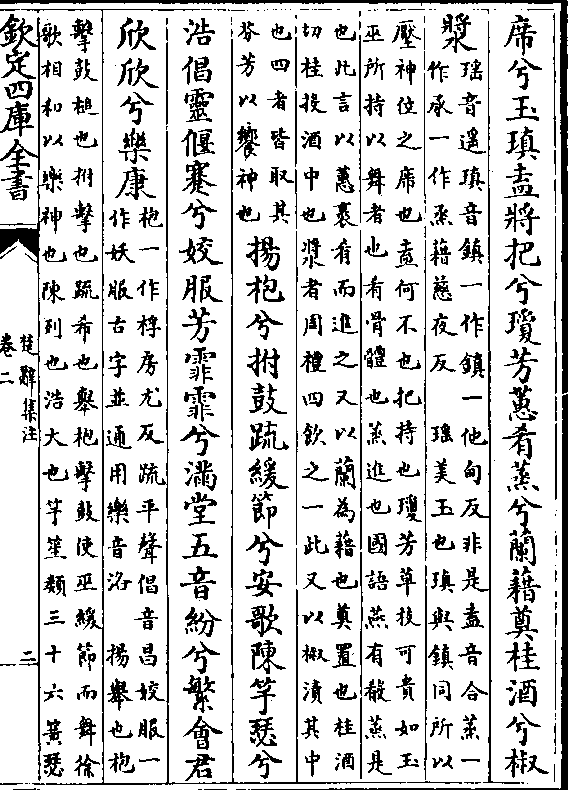 席兮玉瑱盍將把兮瓊芳蕙肴蒸兮蘭藉奠桂酒兮椒
漿
瑶音遥瑱音鎮一作鎮一他甸反非是盍音合蒸一
作承一作烝藉慈夜反　瑶美玉也瑱與鎮同所以
壓神位之席也盍何不也把持也瓊芳草枝可貴如玉
巫所持以舞者也肴骨體也蒸進也國語燕有殽蒸是
也此言以蕙裹肴而進之又以蘭為藉也奠置也桂酒
切桂投酒中也漿者周禮四飲之一此又以椒漬其中
也四者皆取其
芬芳以饗神也
揚枹兮拊鼓疏緩節兮安歌陳竽瑟兮
浩倡靈偃蹇兮姣服芳霏霏兮滿堂五音紛兮繁會君
欣欣兮樂康
枹一作桴房尤反疏平聲倡音昌姣服一
作妖服古字並通用樂音洛　揚舉也枹
擊鼓槌也拊擊也疏希也舉枹擊鼓使巫緩節而舞徐
歌相和以樂神也陳列也浩大也竽笙類三十六簧瑟
欽定四庫全書
楚辭集注
卷二
二